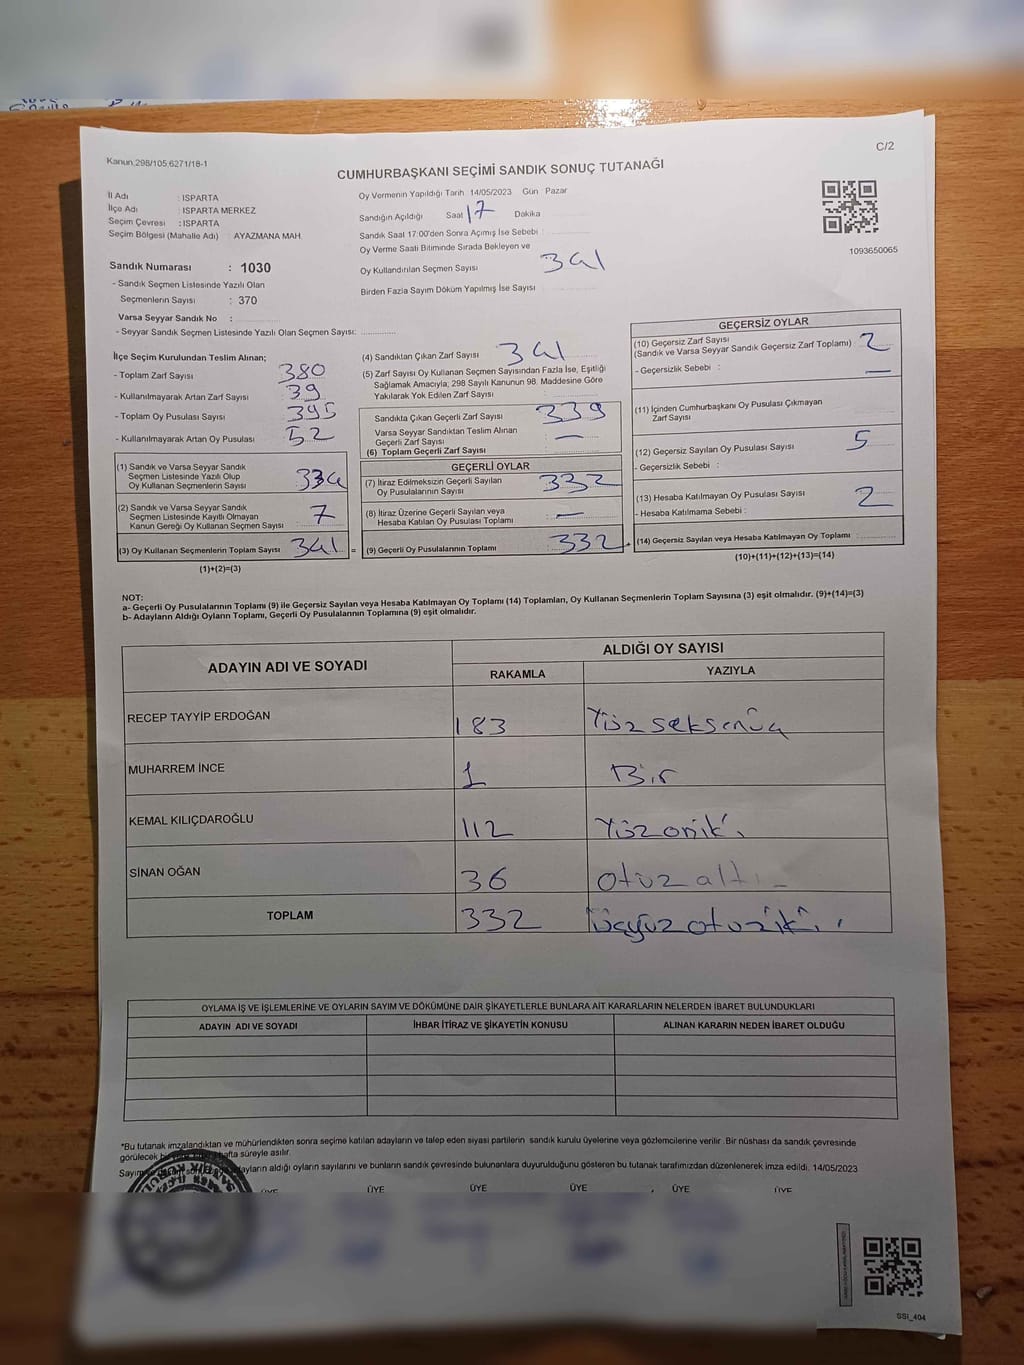 C/2
Kanun.298/105;6271/18-1
CUMHURBAŞKANI SEÇİMİ SANDIK SONUÇ TUTANAĞI
İl Adı : ISPARTA
İlçe Adı : ISPARTA MERKEZ
Seçim Çevresi : ISPARTA
Seçim Bölgesi (Mahalle Adı) : AYAZMANA MAH.
Sandık Numarası : 1030
- Sandık Seçmen Listesinde Yazılı Olan
Seçmenlerin Sayısı : 370
Varsa Seyyar Sandık No :
- Seyyar Sandık Seçmen Listesinde Yazılı Olan Seçmen Sayısı:
Oy Vermenin Yapıldığı Tarih 14/05/2023 Gün Pazar
Sandığın Açıldığı Saat 17 Dakika
Sandık Saat 17:00'den Sonra Açımış İse Sebebi
Oy Verme Saati Bitiminde Sırada Bekleyen ve
Oy Kullandırılan Seçmen Sayısı 341
Birden Fazla Sayım Döküm Yapılmış İse Sayısı
1093650065
İlçe Seçim Kurulundan Teslim Alınan;
- Toplam Zarf Sayısı 380
- Kullanılmayarak Artan Zarf Sayısı 39
- Toplam Oy Pusulası Sayısı 395
- Kullanılmayarak Artan Oy Pusulası 52
(1) Sandık ve Varsa Seyyar Sandık
Seçmen Listesinde Yazılı Olup
Oy Kullanan Seçmenlerin Sayısı 334
(2) Sandık ve Varsa Seyyar Sandık
Seçmen Listesinde Kayıtlı Olmayan
Kanun Gereği Oy Kullanan Seçmen Sayısı 7
(3) Oy Kullanan Seçmenlerin Toplam Sayısı 341 =
(1)+(2)=(3)
(4) Sandıktan Çıkan Zarf Sayısı 341
(5) Zarf Sayısı Oy Kullanan Seçmen Sayısından Fazla İse, Eşitliği
Sağlamak Amacıyla; 298 Sayılı Kanunun 98. Maddesine Göre
Yakılarak Yok Edilen Zarf Sayısı
Sandıkta Çıkan Geçerli Zarf Sayısı 339
Varsa Seyyar Sandıktan Teslim Alınan
Geçerli Zarf Sayısı —
(6) Toplam Geçerli Zarf Sayısı
GEÇERLİ OYLAR
(7) İtiraz Edilmeksizin Geçerli Sayılan
Oy Pusulalarının Sayısı 332
(8) İtiraz Üzerine Geçerli Sayılan veya
Hesaba Katılan Oy Pusulası Toplamı —
(9) Geçerli Oy Pusulalarının Toplamı 332 +
GEÇERSİZ OYLAR
(10) Geçersiz Zarf Sayısı
(Sandık ve Varsa Seyyar Sandık Geçersiz Zarf Toplamı) 2
- Geçersizlik Sebebi : —
(11) İçinden Cumhurbaşkanı Oy Pusulası Çıkmayan
Zarf Sayısı
(12) Geçersiz Sayılan Oy Pusulası Sayısı 5
- Geçersizlik Sebebi :
(13) Hesaba Katılmayan Oy Pusulası Sayısı 2
- Hesaba Katılmama Sebebi :
(14) Geçersiz Sayılan veya Hesaba Katılmayan Oy Toplamı
(10)+(11)+(12)+(13)=(14)
NOT:
a- Geçerli Oy Pusulalarının Toplamı (9) ile Geçersiz Sayılan veya Hesaba Katılmayan Oy Toplamı (14) Toplamları, Oy Kullanan Seçmenlerin Toplam Sayısına (3) eşit olmalıdır. (9)+(14)=(3)
b- Adayların Aldığı Oyların Toplamı, Geçerli Oy Pusulalarının Toplamına (9) eşit olmalıdır.
ADAYIN ADI VE SOYADI
ALDIĞI OY SAYISI
RAKAMLA YAZIYLA
RECEP TAYYİP ERDOĞAN 183 Yüz seksenüç
MUHARREM İNCE 1 Bir
KEMAL KILIÇDAROĞLU 112 Yüzoniki
SİNAN OĞAN 36 otuz altı
TOPLAM 332 üçyüzotuziki
OYLAMA İŞ VE İŞLEMLERİNE VE OYLARIN SAYIM VE DÖKÜMÜNE DAİR ŞİKAYETLERLE BUNLARA AİT KARARLARIN NELERDEN İBARET BULUNDUKLARI
ADAYIN ADI VE SOYADI İHBAR İTİRAZ VE ŞİKAYETİN KONUSU ALINAN KARARIN NEDEN İBARET OLDUĞU
*Bu tutanak imzalandıktan ve mühürlendikten sonra seçime katılan adayların ve talep eden siyasi partilerin sandık kurulu üyelerine veya gözlemcilerine verilir. Bir nüshası da sandık çevresinde
görülecek hafta süreyle asılır.
adayların aldığı oyların sayılarını ve bunların sandık çevresinde bulunanlara duyurulduğunu gösteren bu tutanak tarafımızdan düzenlenerek imza edildi. 14/05/2023
ÜYE ÜYE ÜYE ÜYE ÜYE ÜYE
SSI_404